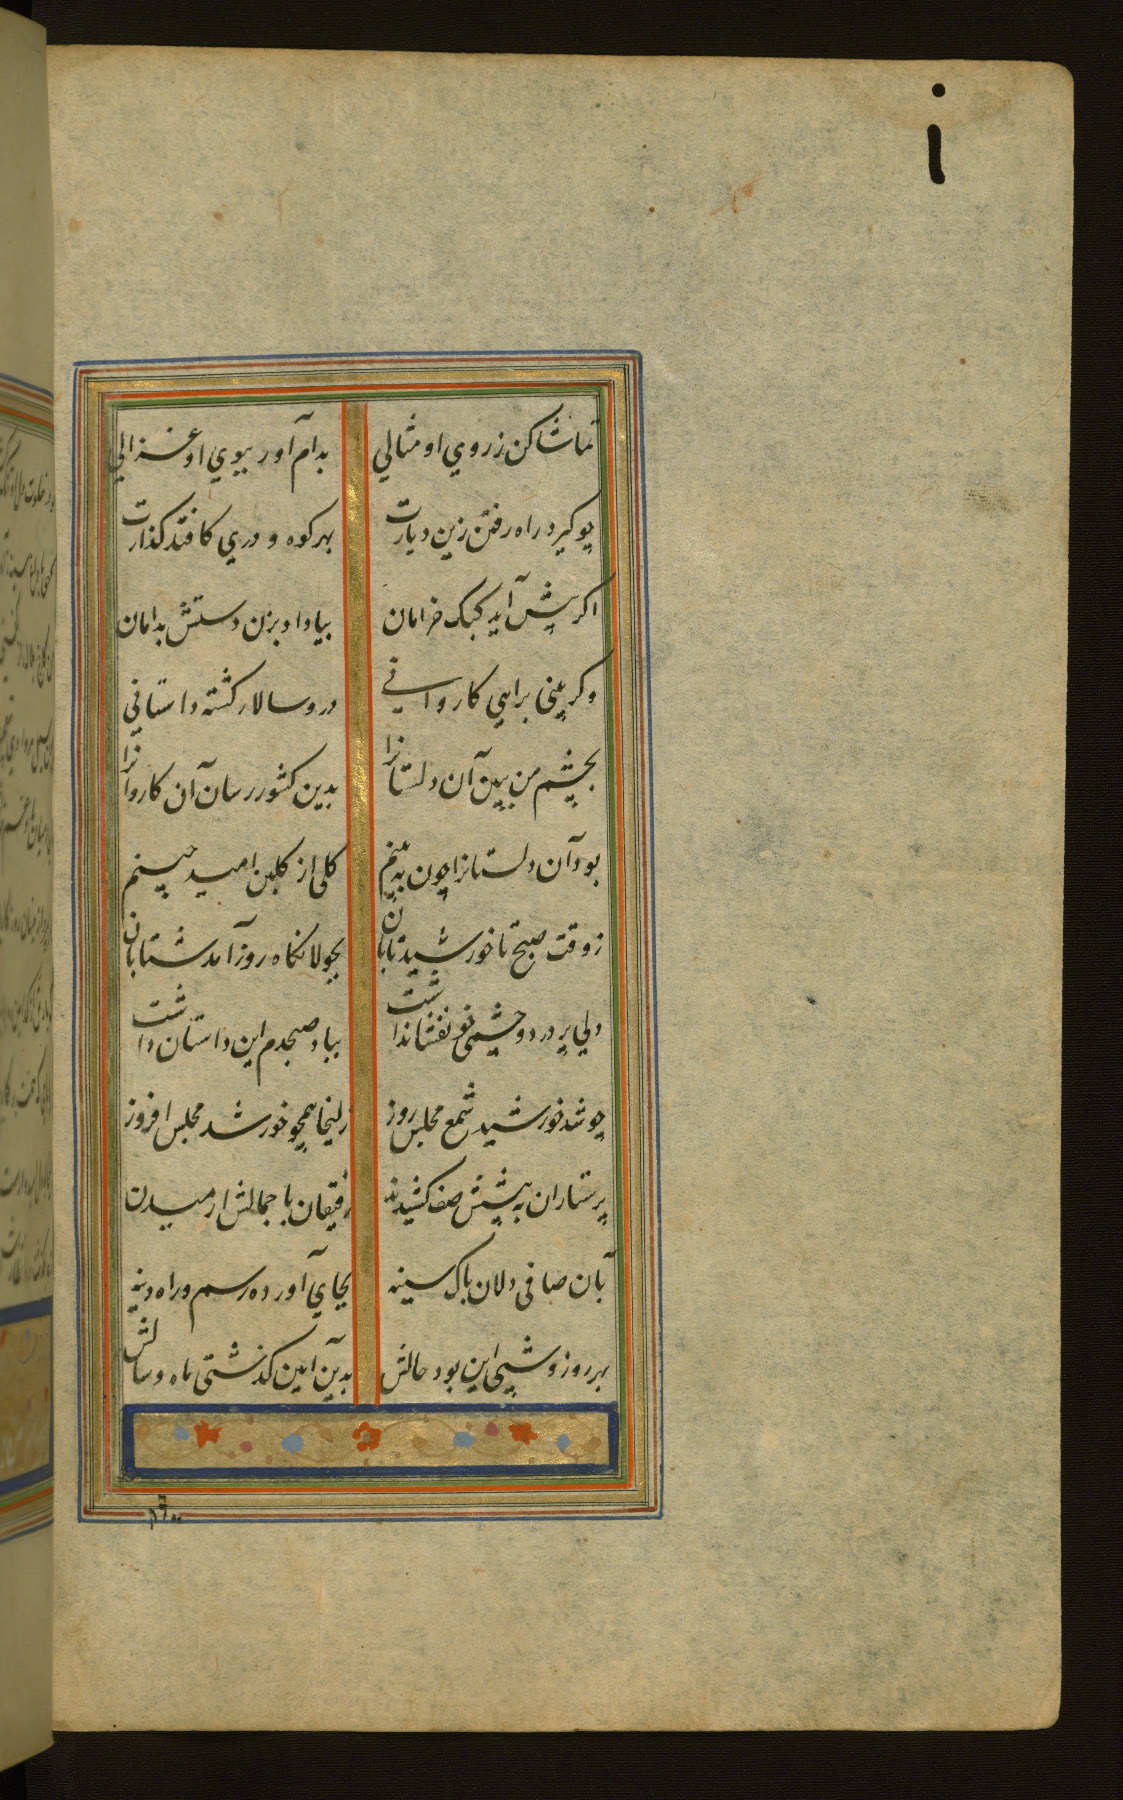 تماشا کن ز روی او مثالی بدام آور ببوی او غزالی
چو کیرد راه رفتن زین دیارت بهر کوه و دری کافتد کذارت
اکر پیش آید کبک خرامان بیاد او بزن دستش بدامان
وکر بینی براهی کاروانی درو سالار کشته دلستانی
بچشم من ببین آن دلستانرا بدین کشور رسان آن کاروانرا
بود آن دلستانرا چون به بینم کلی از کلبن امید چینم
ز وقت صبح تا خورشید تابان بجولانکاه روز آمد شتابان
دلی پر درد و چشمی داشت بباد صبحدم این داستان داشت
چو شد خورشید شمع مجلس روز زلیخا همچو خورشد مجلس افروز
پرستاران به پیشش صف کشیدند رفیقان با جمالش ارمیدن
بآن صافی دلان پاک سینه بجای آورده رسم و راه دینه
بهر روز و شبی این بود حالش بدین آیین کذشتی ماه و سالش